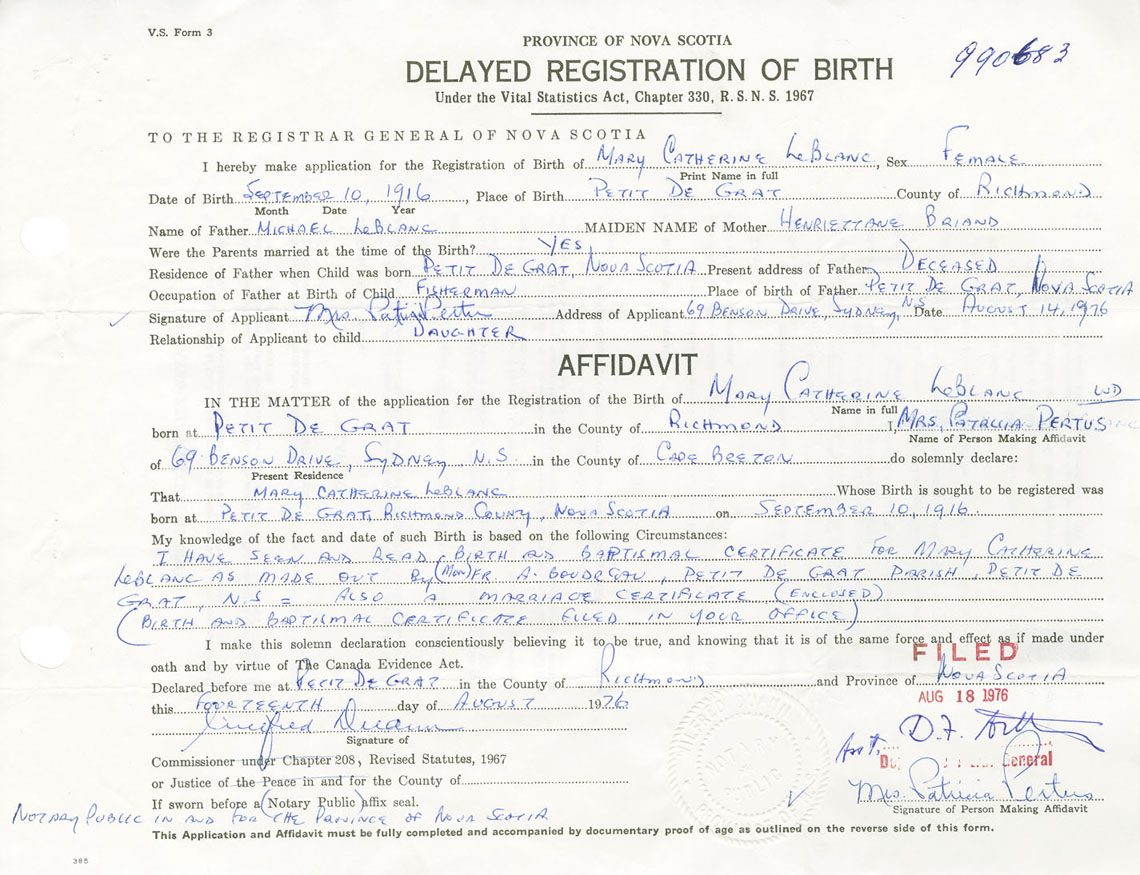 V.S. Form 3
PROVINCE OF NOVA SCOTIA
990683
DELAYED REGISTRATION OF BIRTH
Under the Vital Statistics Act, Chapter 330, R. S. N. S. 1967
TO THE REGISTRAR GENERAL OF NOVA SCOTIA
I hereby make application for the Registration of Birth of MARY CATHERINE LEBLANC, Sex FEMALE
Print Name in full
Date of Birth SEPTEMBER 10, 1916, Place of Birth PETIT DE GRAT County of RICHMOND
Month Date Year
Name of Father MICHAEL LEBLANC MAIDEN NAME of Mother HENRIETTANE BRIAND
Were the Parents married at the time of the Birth? YES
Residence of Father when Child was born PETIT DE GRAT, NOVA SCOTIA Present address of Father DECEASED
Occupation of Father at Birth of Child FISHERMAN Place of birth of Father PETIT DE GRAT, NOVA SCOTIA
Signature of Applicant Mrs. Patricia Pertus Address of Applicant 69 BENSON DRIVE, SYDNEY, N.S. Date AUGUST 14, 1976
Relationship of Applicant to child DAUGHTER
AFFIDAVIT
IN THE MATTER of the application for the Registration of the Birth of MARY CATHERINE LEBLANC
Name in full
born at PETIT DE GRAT in the County of RICHMOND I, MRS. PATRICIA PERTUS
Name of Person Making Affidavit
of 69 BENSON DRIVE, SYDNEY N.S. in the County of CAPE BRETON do solemnly declare:
Present Residence
That MARY CATHERINE LEBLANC Whose Birth is sought to be registered was
born at PETIT DE GRAT, RICHMOND COUNTY, NOVA SCOTIA on SEPTEMBER 10, 1916.
My knowledge of the fact and date of such Birth is based on the following Circumstances:
I HAVE SEEN AND READ BIRTH AND BAPTISMAL CERTIFICATE FOR MARY CATHERINE
LEBLANC AS MADE OUT By (Mon) FR. A. BOUDREAU, PETIT DE GRAT PARISH, PETIT DE
GRAT, N.S = ALSO A MARRIAGE CERTIFICATE (ENCLOSED)
(BIRTH AND BAPTISMAL CERTIFICATE FILED IN YOUR OFFICE)
I make this solemn declaration conscientiously believing it to be true, and knowing that it is of the same force and effect as if made under
oath and by virtue of The Canada Evidence Act.
FILED
Declared before me at PETIT DE GRAT in the County of RICHMOND and Province of NOVA SCOTIA
AUG 18 1976
this FOURTEENTH day of AUGUST 1976
Signature of
Commissioner under Chapter 208, Revised Statutes, 1967
General
or Justice of the Peace in and for the County of
Mrs. Patricia Pertus
If sworn before a (Notary Public) affix seal.
Signature of Person Making Affidavit
NOTARY PUBLIC IN AND FOR THE PROVINCE OF NOVA SCOTIA
This Application and Affidavit must be fully completed and accompanied by documentary proof of age as outlined on the reverse side of this form.
385